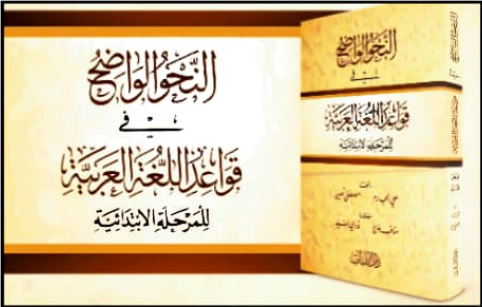 النَّحْوُ الْوَاضِحُ
في
قَوَاعِدِ اللُّغَةِ الْعَرَبِيَّةِ
لِلْمَرْحَلَةِ الِابْتِدَائِيَّةِ
النحو الواضح
في
قواعد اللغة العربية
للمرحلة الابتدائية
علي الجارم
مصطفى أمين